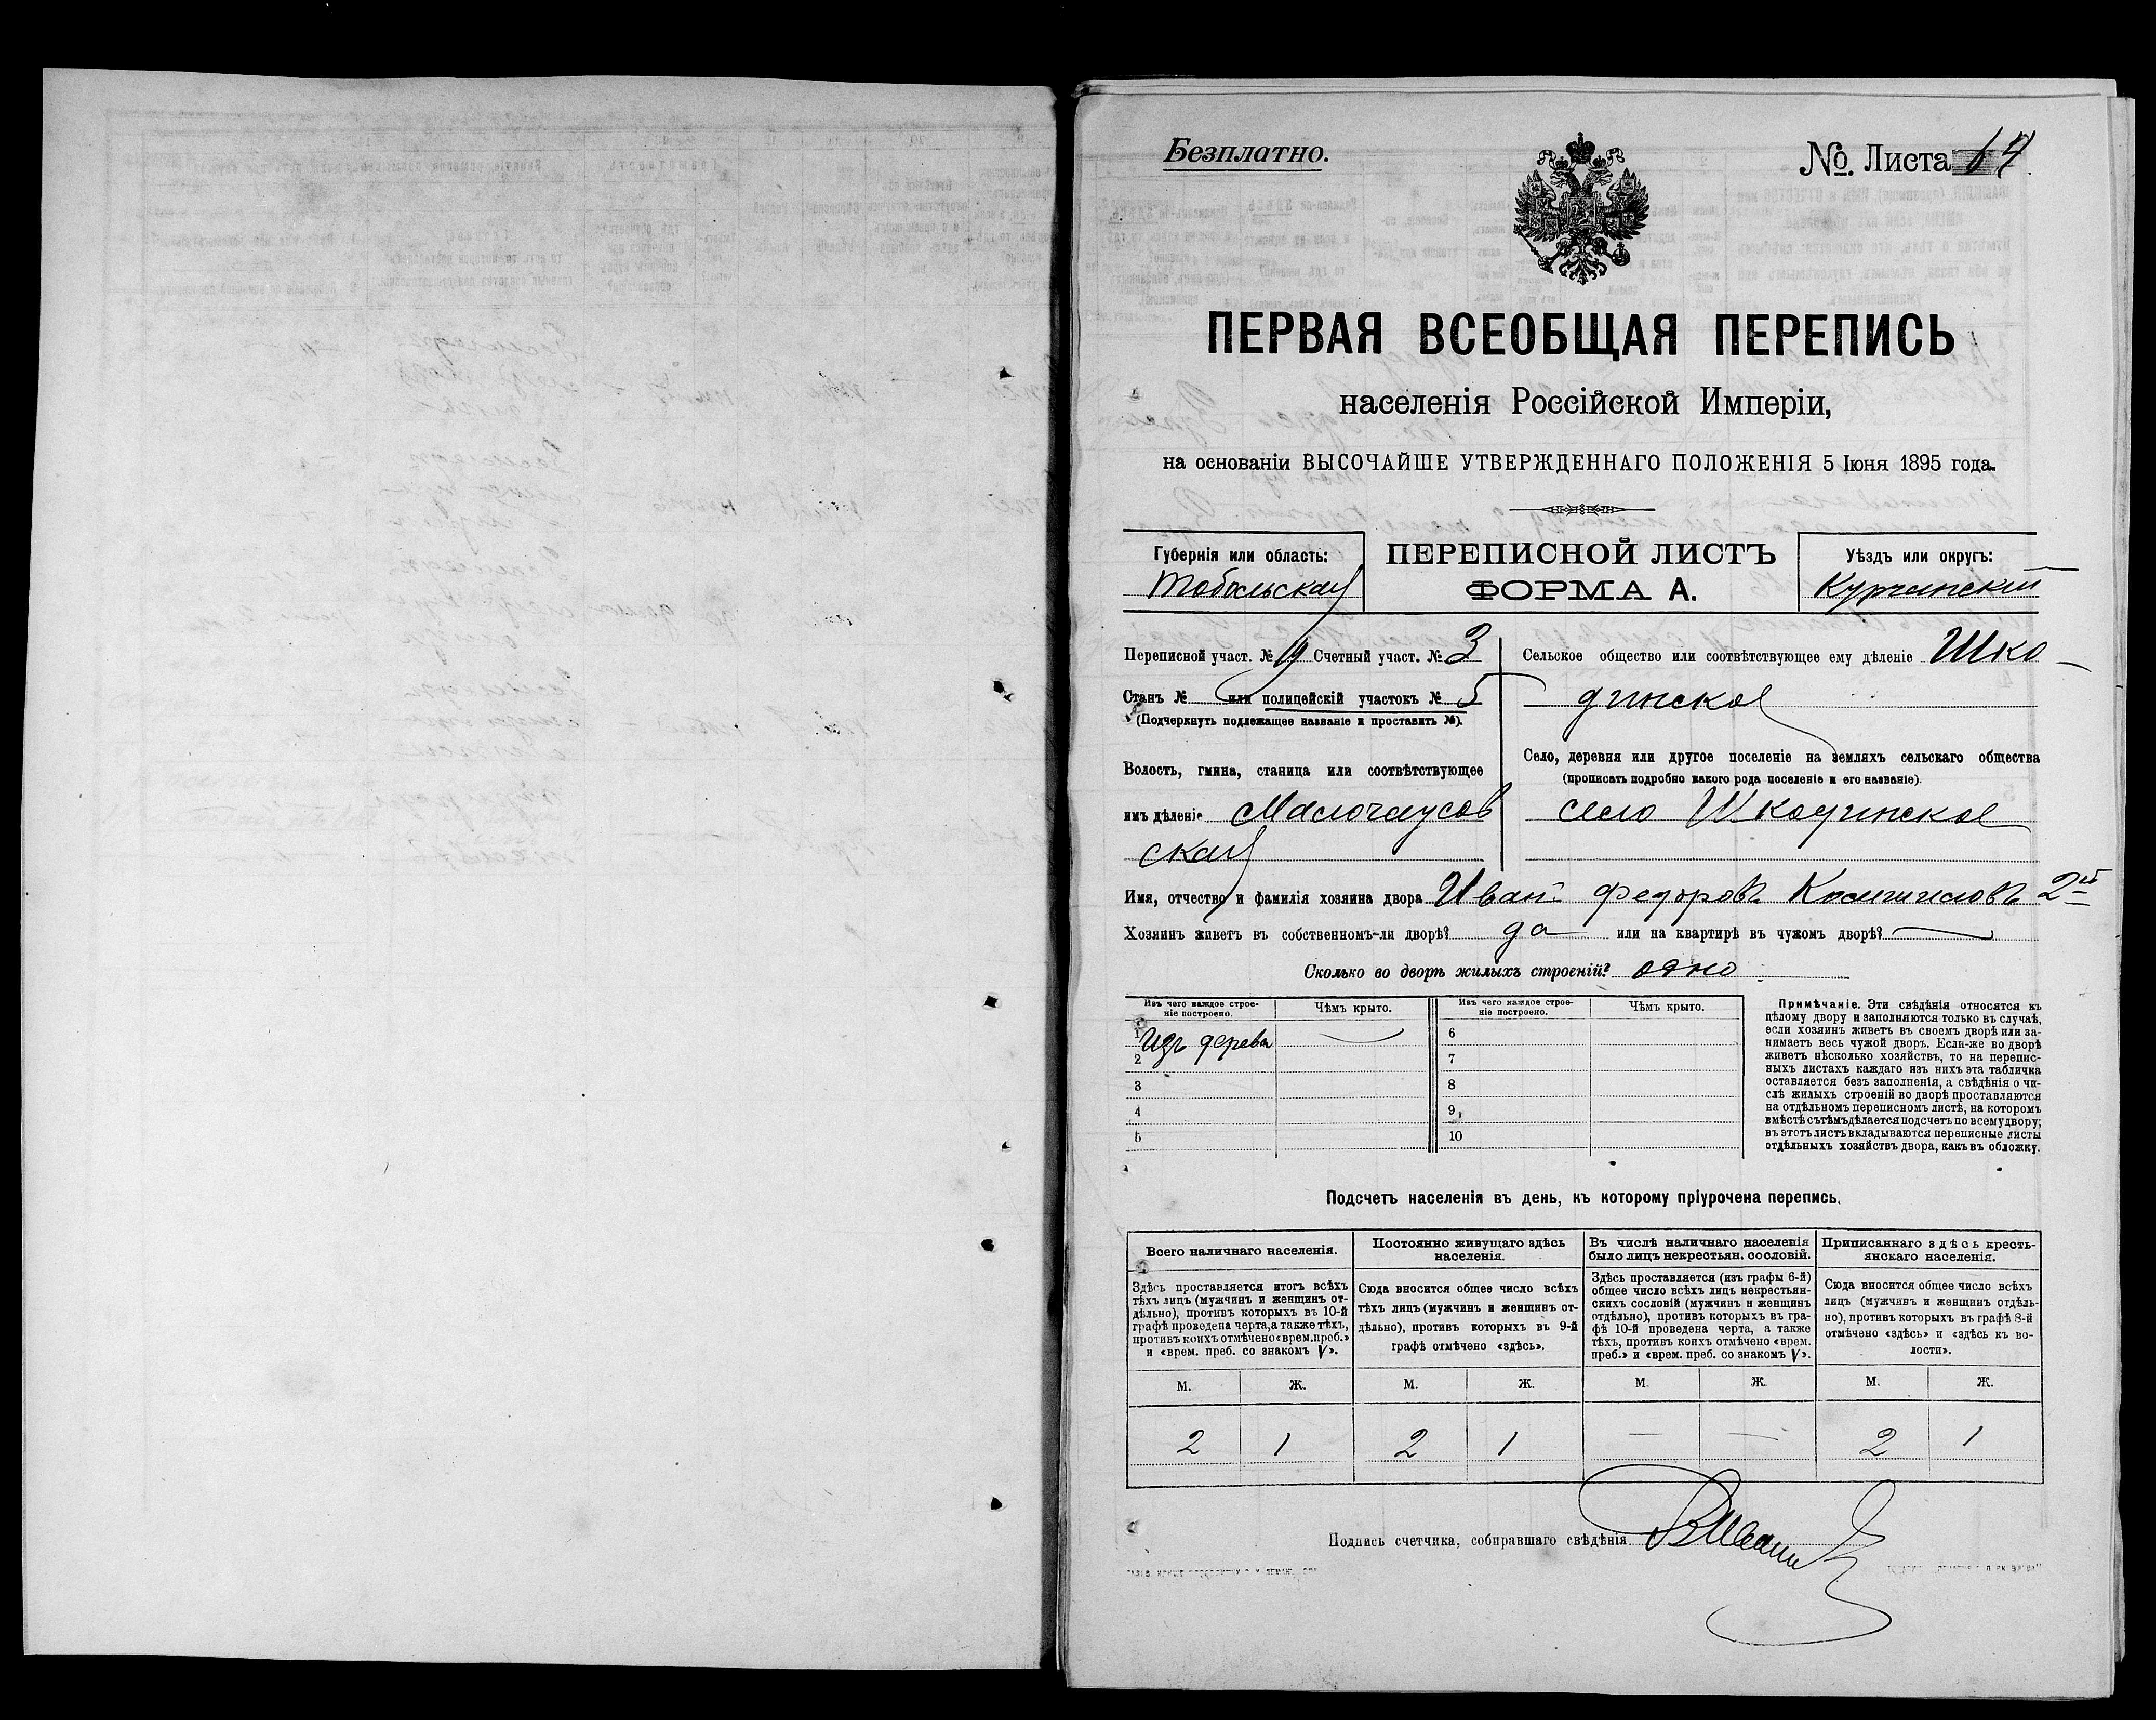 Безплатно.
№. Листа 17
ПЕРВАЯ ВСЕОБЩАЯ ПЕРЕПИСЬ
населенія Россійской Имперіи,
на основаніи ВЫСОЧАЙШЕ УТВЕРЖДЕННАГО ПОЛОЖЕНІЯ 5 Іюня 1895 года.
Губернія или область:
Тобольская
ПЕРЕПИСНОЙ ЛИСТЪ
ФОРМА А.
Уѣздъ или округъ:
Курганский
Переписной участ. № Счетный участ. № 3
Станъ № или полицейскій участокъ № 5
(Подчеркнуть подлежащее названіе и проставить №).
Волость, гмина, станица или соотвѣтствующее
имъ дѣленіе Малочаусов
ская
Сельское общество или соотвѣтствующее ему дѣленіе Шко
динское
Село, деревня или другое поселеніе на земляхъ сельскаго общества
(прописать подробно какого рода поселеніе и его названіе).
село Шкодинское
Имя, отчество и фамилія хозяина двора Иван Федоровъ 2й
Хозяинъ живетъ въ собственномъ-ли дворѣ? да или на квартирѣ въ чужомъ дворѣ?
Сколько во дворѣ жилыхъ строеній? одно
Изъ чего каждое строе-
ніе построено.
Чѣмъ крыто.
Изъ чего каждое строе-
ніе построено.
Чѣмъ крыто.
1 Изъ дерева
2
3
4
5
6
7
8
9
10
Примѣчаніе. Эти свѣдѣнія относятся къ
цѣлому двору и заполняются только въ случаѣ,
если хозяинъ живетъ въ своемъ дворѣ или за-
нимаетъ весь чужой дворъ. Если-же во дворѣ
живетъ нѣсколько хозяйствъ, то на перепис-
ныхъ листахъ каждаго изъ нихъ эта табличка
оставляется безъ заполненія, а свѣдѣнія о чи-
слѣ жилыхъ строеній во дворѣ проставляются
на отдѣльномъ переписномъ листѣ, на которомъ
вмѣстѣ съ тѣмъ дѣлается подсчетъ по всему двору;
въ этотъ листъ вкладываются переписные листы
отдѣльныхъ хозяйствъ двора, какъ въ обложку.
Подсчетъ населенія въ день, къ которому пріурочена перепись.
Всего наличнаго населенія.
Здѣсь проставляется итогъ всѣхъ
тѣхъ лицъ (мужчинъ и женщинъ от-
дѣльно), противъ которыхъ въ 10-й
графѣ проведена черта, а также тѣхъ,
противъ коихъ отмѣчено «врем. преб.»
и «врем. преб. со знакомъ V».
Постоянно живущаго здѣсь
населенія.
Сюда вносится общее число всѣхъ
тѣхъ лицъ (мужчинъ и женщинъ от-
дѣльно), противъ которыхъ въ 9-й
графѣ отмѣчено «здѣсь».
Въ числѣ наличнаго населенія
было лицъ некрестьян. сословій.
Здѣсь проставляется (изъ графы 6-й)
общее число всѣхъ лицъ некрестьян-
скихъ сословій (мужчинъ и женщинъ
отдѣльно), противъ которыхъ въ гра-
фѣ 10-й проведена черта, а также
тѣхъ, противъ коихъ отмѣчено «врем.
преб.» и «врем. преб. со знакомъ V».
Приписаннаго здѣсь кресть-
янскаго населенія.
Сюда вносится общее число всѣхъ
лицъ (мужчинъ и женщинъ отдѣль-
но), противъ которыхъ въ графѣ 8-й
отмѣчено «здѣсь» и «здѣсь къ во-
лости».
М. Ж. М. Ж. М. Ж. М. Ж.
2 1 2 1 — — 2 1
Подпись счетчика, собиравшаго свѣдѣнія